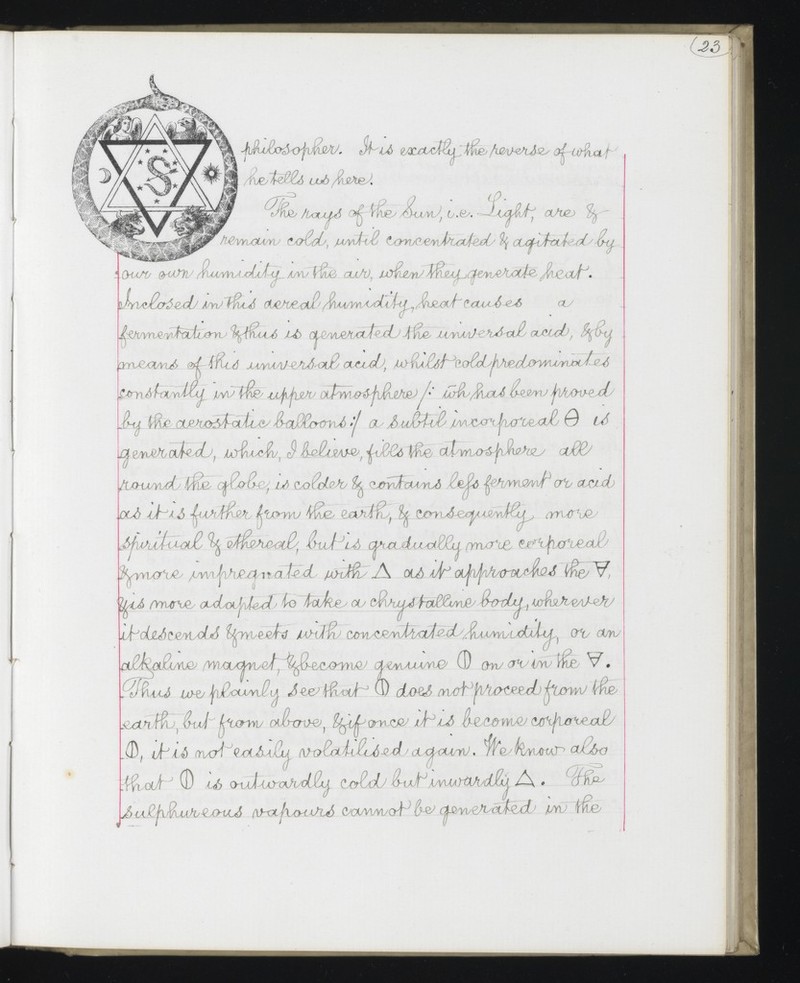 23
philosopher. It is exactly the reverse of what
he tells us here.
The rays of the Sun, i.e. Light, are &
remain cold, until concentrated & agitated by
our own humidity in the air, when they generate heat.
Inclosed in this aereal humidity, heat causes a
fermentation & thus is generated the universal acid, & by
means of this universal acid, whilst cold predominates
constantly in the upper atmosphere /: wh has been proved
by the aerostatic balloons :/ a subtil incorporeal Ө is
generated, which, I believe, fills the atmosphere all
round the globe, is colder & contains leſs ferment or acid
as it is further from the earth, & consequently more
spiritual & ethereal, but is gradually more corporeal
& more impregnated with △ as it approaches the 🜃,
& is more adapted to take a chrystalline body, wherever
it descends & meets with concentrated humidity, or an
alkaline magnet, & become genuine ⦶ on or in the 🜃.
Thus we plainly see that ⦶ does not proceed from the
earth, but from above, & if once it is become corporeal
⦶, it is not easily volatilised again. We know also
that ⦶ is outwardly cold but inwardly △. The
sulphureous vapours cannot be generated in the